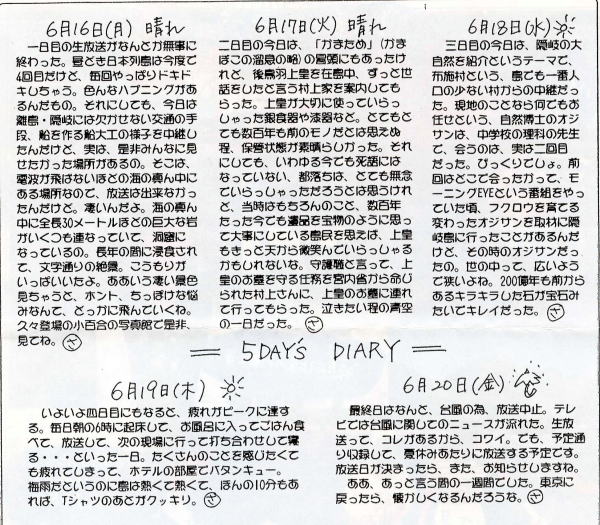 6月16日(月) 晴れ
一日目の生放送がなんとか無事に
終わった。昼どき日本列島は今度で
4回目だけど、毎回やっぱりドキド
キしちゃう。色んなハプニングがあ
るんだもの。それにしても、今日は
離島・隠岐には欠かせない交通の手
段、船を作る船大工の様子を中継し
たんだけど、実は、是非みんなに見
せたかった場所があるの。そこは、
電波が飛ばないほどの海の真ん中に
ある場所なので、放送は出来なかっ
たんだけど。凄いんだよ。海の真ん
中に全長30メートルほどの巨大な岩
がいくつも連なっていて、洞窟に
なっているの。長年の間に浸食され
て、文字通りの絶景。こうもりが
いっぱいいたよ。ああいう凄い景色
見ちゃうと、ホント、ちっぽけな悩
みなんて、どっかに飛んでいくね。
久々登場の小百合の写真館で是非、
見てね。さ
6月17日(火) 晴れ
二日目の今日は、「かきため」(かき
ぼこの溜息の略)の冒頭にもあったけ
れど、後鳥羽上皇を在島中、ずっと世
話をしたと言う村上家を案内しても
らった。上皇が大切に使っていらっ
しゃった銀食器や漆器など。とてもと
ても数百年も前のモノだとは思えぬ
程、保管状態が素晴らしかった。それ
にしても、いわゆる今でも死語には
なっていない、都落ちは、とても無念
でいらっしゃっただろうとは思うけれ
ど、当時はもちろんのこと、数百年
たった今でも遺品を宝物のように思っ
て大事にしている島民を思えば、上皇
もきっと天から微笑んでいらっしゃる
かもしれないな。守護職と言って、上
皇のお墓を守る任務を宮内省から命じ
られた村上さんに、上皇のお墓に連れ
て行ってもらった。泣きたい程の青空
の一日だった。さ
6月18日(水)
三日目の今日は、隠岐の大
自然を紹介というテーマで、
布施村という、島でも一番人
口の少ない村からの中継だっ
た。現地のことなら何でもお
任せという、自然博士のオジ
サンは、中学校の理科の先生
で、会うのは、実は二回目
だった。びっくりでしょ。前
回はどこで会ったかって、モ
ーニングEYEという番組をやっ
ていた頃、フクロウを育てる
変わったオジサンを取材に隠
岐島に行ったことがあるんだ
けど、その時のオジサンだっ
たの。世の中って、広いよう
で狭いよね。200億年も前から
あるキラキラした石が宝石み
たいでキレイだった。さ
= 5DAY's DIARY =
6月19日(木)
いよいよ四日目にもなると、疲れがピークに達す
る。毎日朝の6時に起床して、お風呂に入ってごはん食
べて、放送して、次の現場に行って打ち合わせして寝
る・・・といった一日。たくさんのことを感じたくて
も疲れてしまって、ホテルの部屋でバタンキュー。
梅雨だというのに島は熱くて熱くて、ほんの10分もあ
れば、Tシャツのあとがクッキリ。さ
6月20日(金)
最終日はなんと、台風の為、放送中止。テレ
ビでは台風に関してのニュースが流れた。生放
送って、コレがあるから、コワイ。でも、予定通
り収録して、夏休みあたりに放送する予定です。
放送日が決まったら、また、お知らせしますね。
ああ、あっと言う間の一週間でした。東京に
戻ったら、懐かしくなるんだろうな。さ